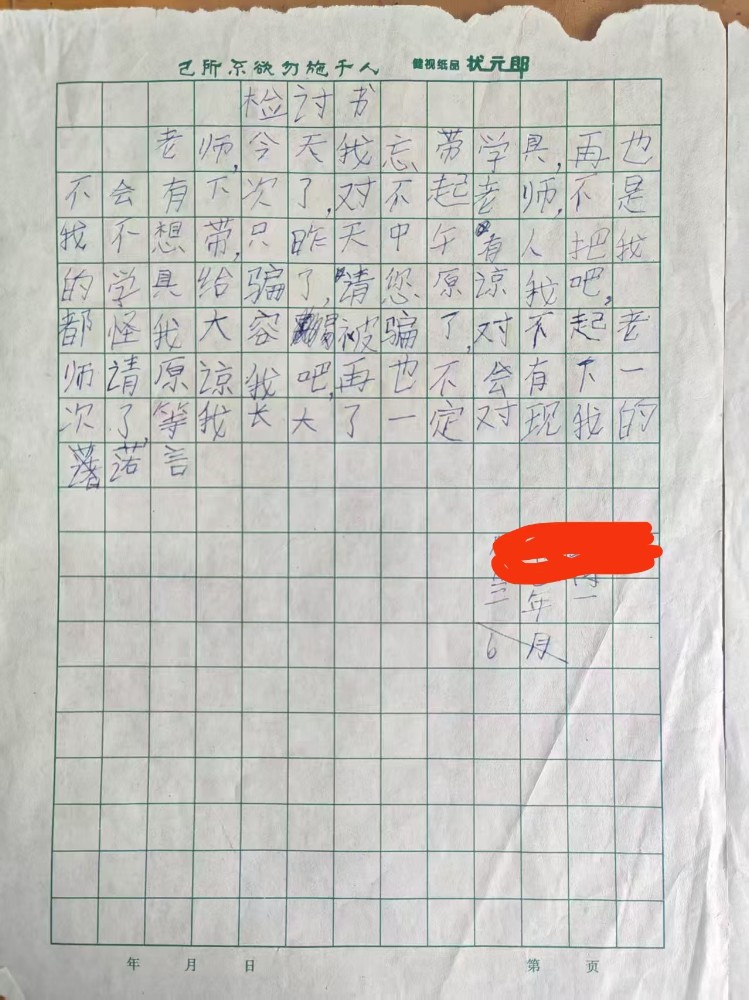 己所不欲勿施于人 健视纸品 状元郎
检讨书
老师,今天我忘带学具,再也
不会有下次了,对不起老师,不是
我不想带,只昨天中午有人把我
的学具给骗了,请您原谅我吧,
都怪我大容易被骗了,对不起老
师请原谅我吧,再也不会有下一
次了,等我长大了一定对现我的
诺言
三 年
6 月
年 月 日 第 页